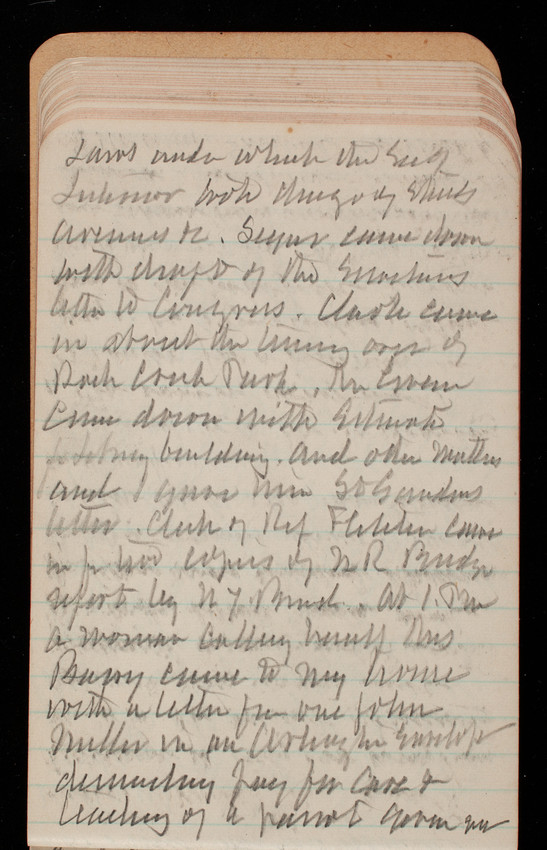 Laws under which the Secy
Interior took charge of Streets
avenues &c. Segur came down
with draft of the Secretarys
letter to Congress. Clark came
in about the turning over of
Rock Creek Park. Mr Gwen
Came down with Estimate
Library building and other matters
and I gave him Saunders
letter. Clerk of Rep Fletcher came
in for two copies of N R Bridge
report by N.Y. Board. At 1 PM
a woman calling herself Mrs
came to my house
with a letter for one John
Miller in an Arlington Envelope
demanding pay for care &
teaching of a parrot